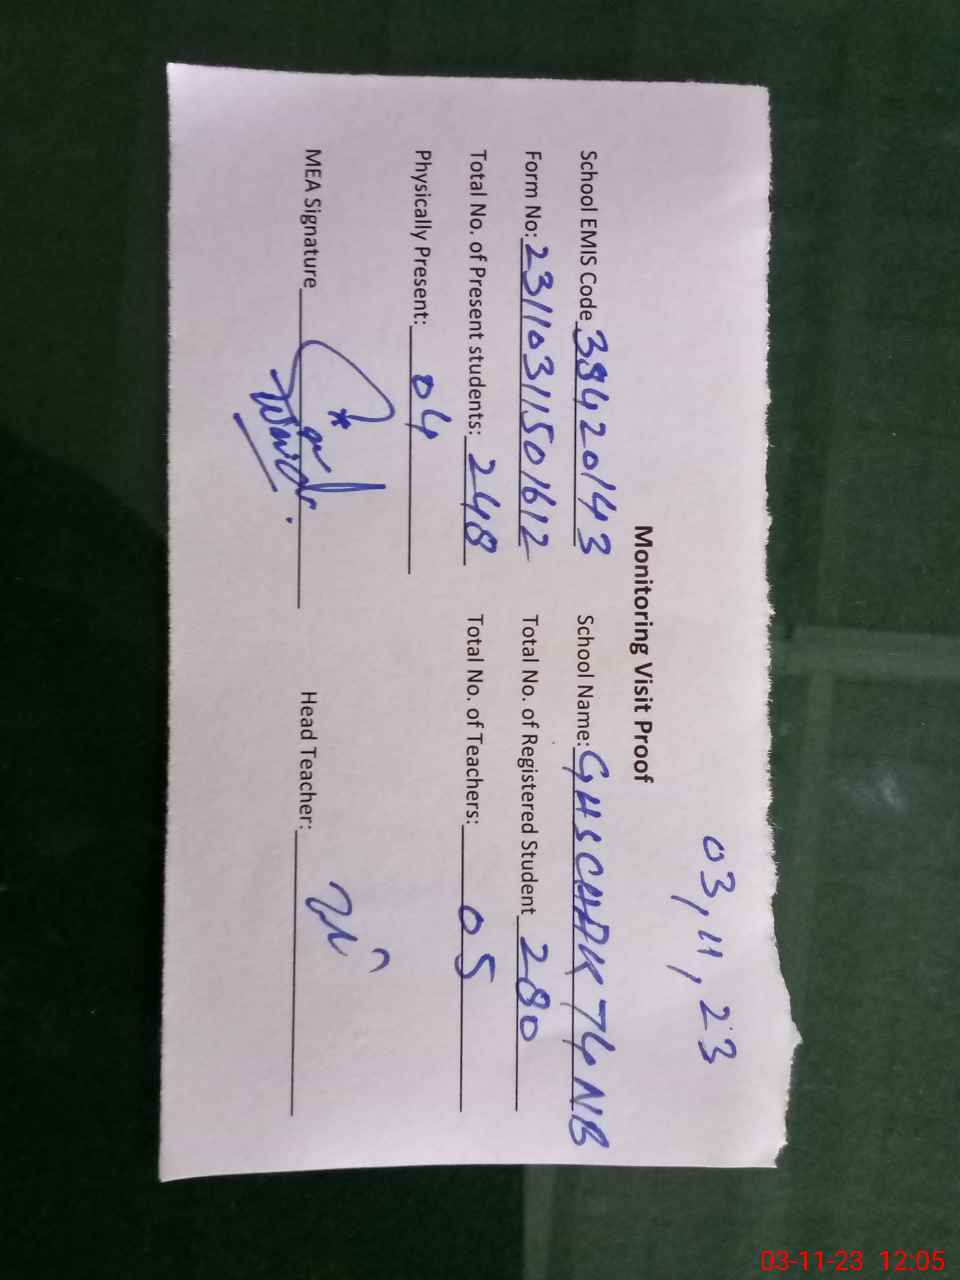 03,11,23
Monitoring Visit Proof
School EMIS Code 38420143 School Name: GHS CHAK 74 NB
Form No: 23110311501612 Total No. of Registered Student 280
Total No. of Present students: 248 Total No. of Teachers: 05
Physically Present: 04
MEA Signature Head Teacher:
03-11-23 12:05